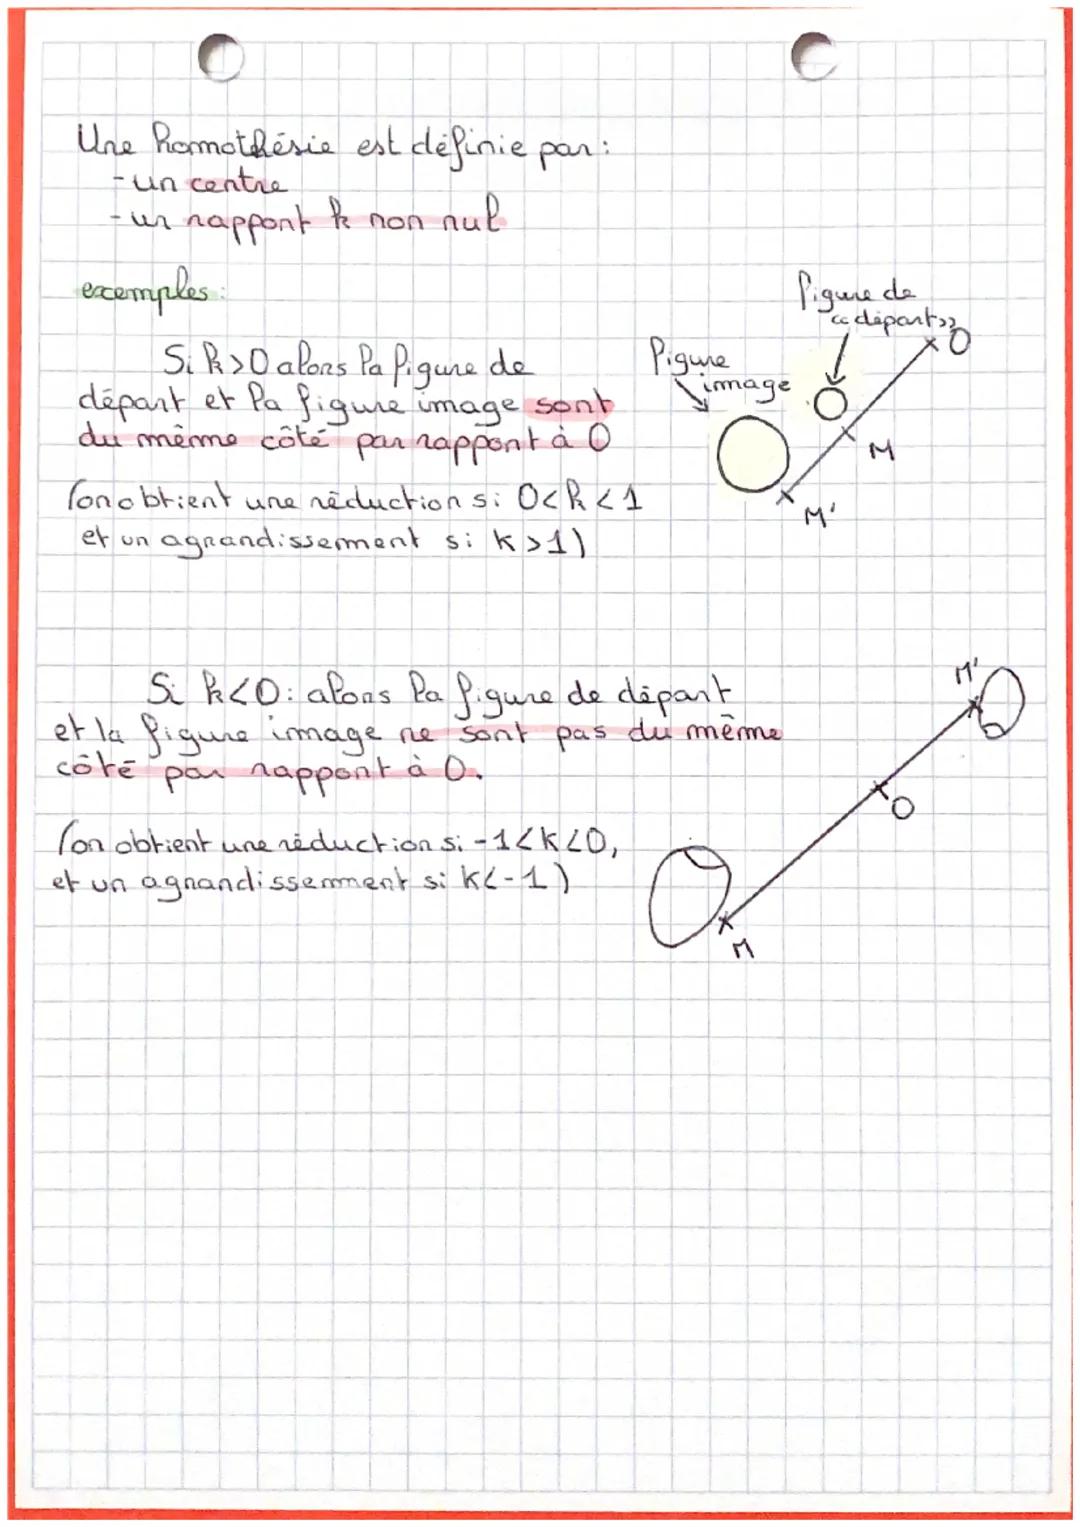 Une homothésie est définie par :
- un centre
- un rapport k non nul
exemples :
Si k>0 alors la figure de
départ et la figure image sont
du même côté par rapport à O
(on obtient une réduction si 0<k<1
et un agrandissement si k>1)
figure de
<<départ>>
figure
image
O
M
M'
Si k<0 : alors la figure de départ
et la figure image ne sont pas du même
côté par rapport à O.
(on obtient une réduction si -1<k<0,
et un agrandissement si k<-1)
M'
O
M